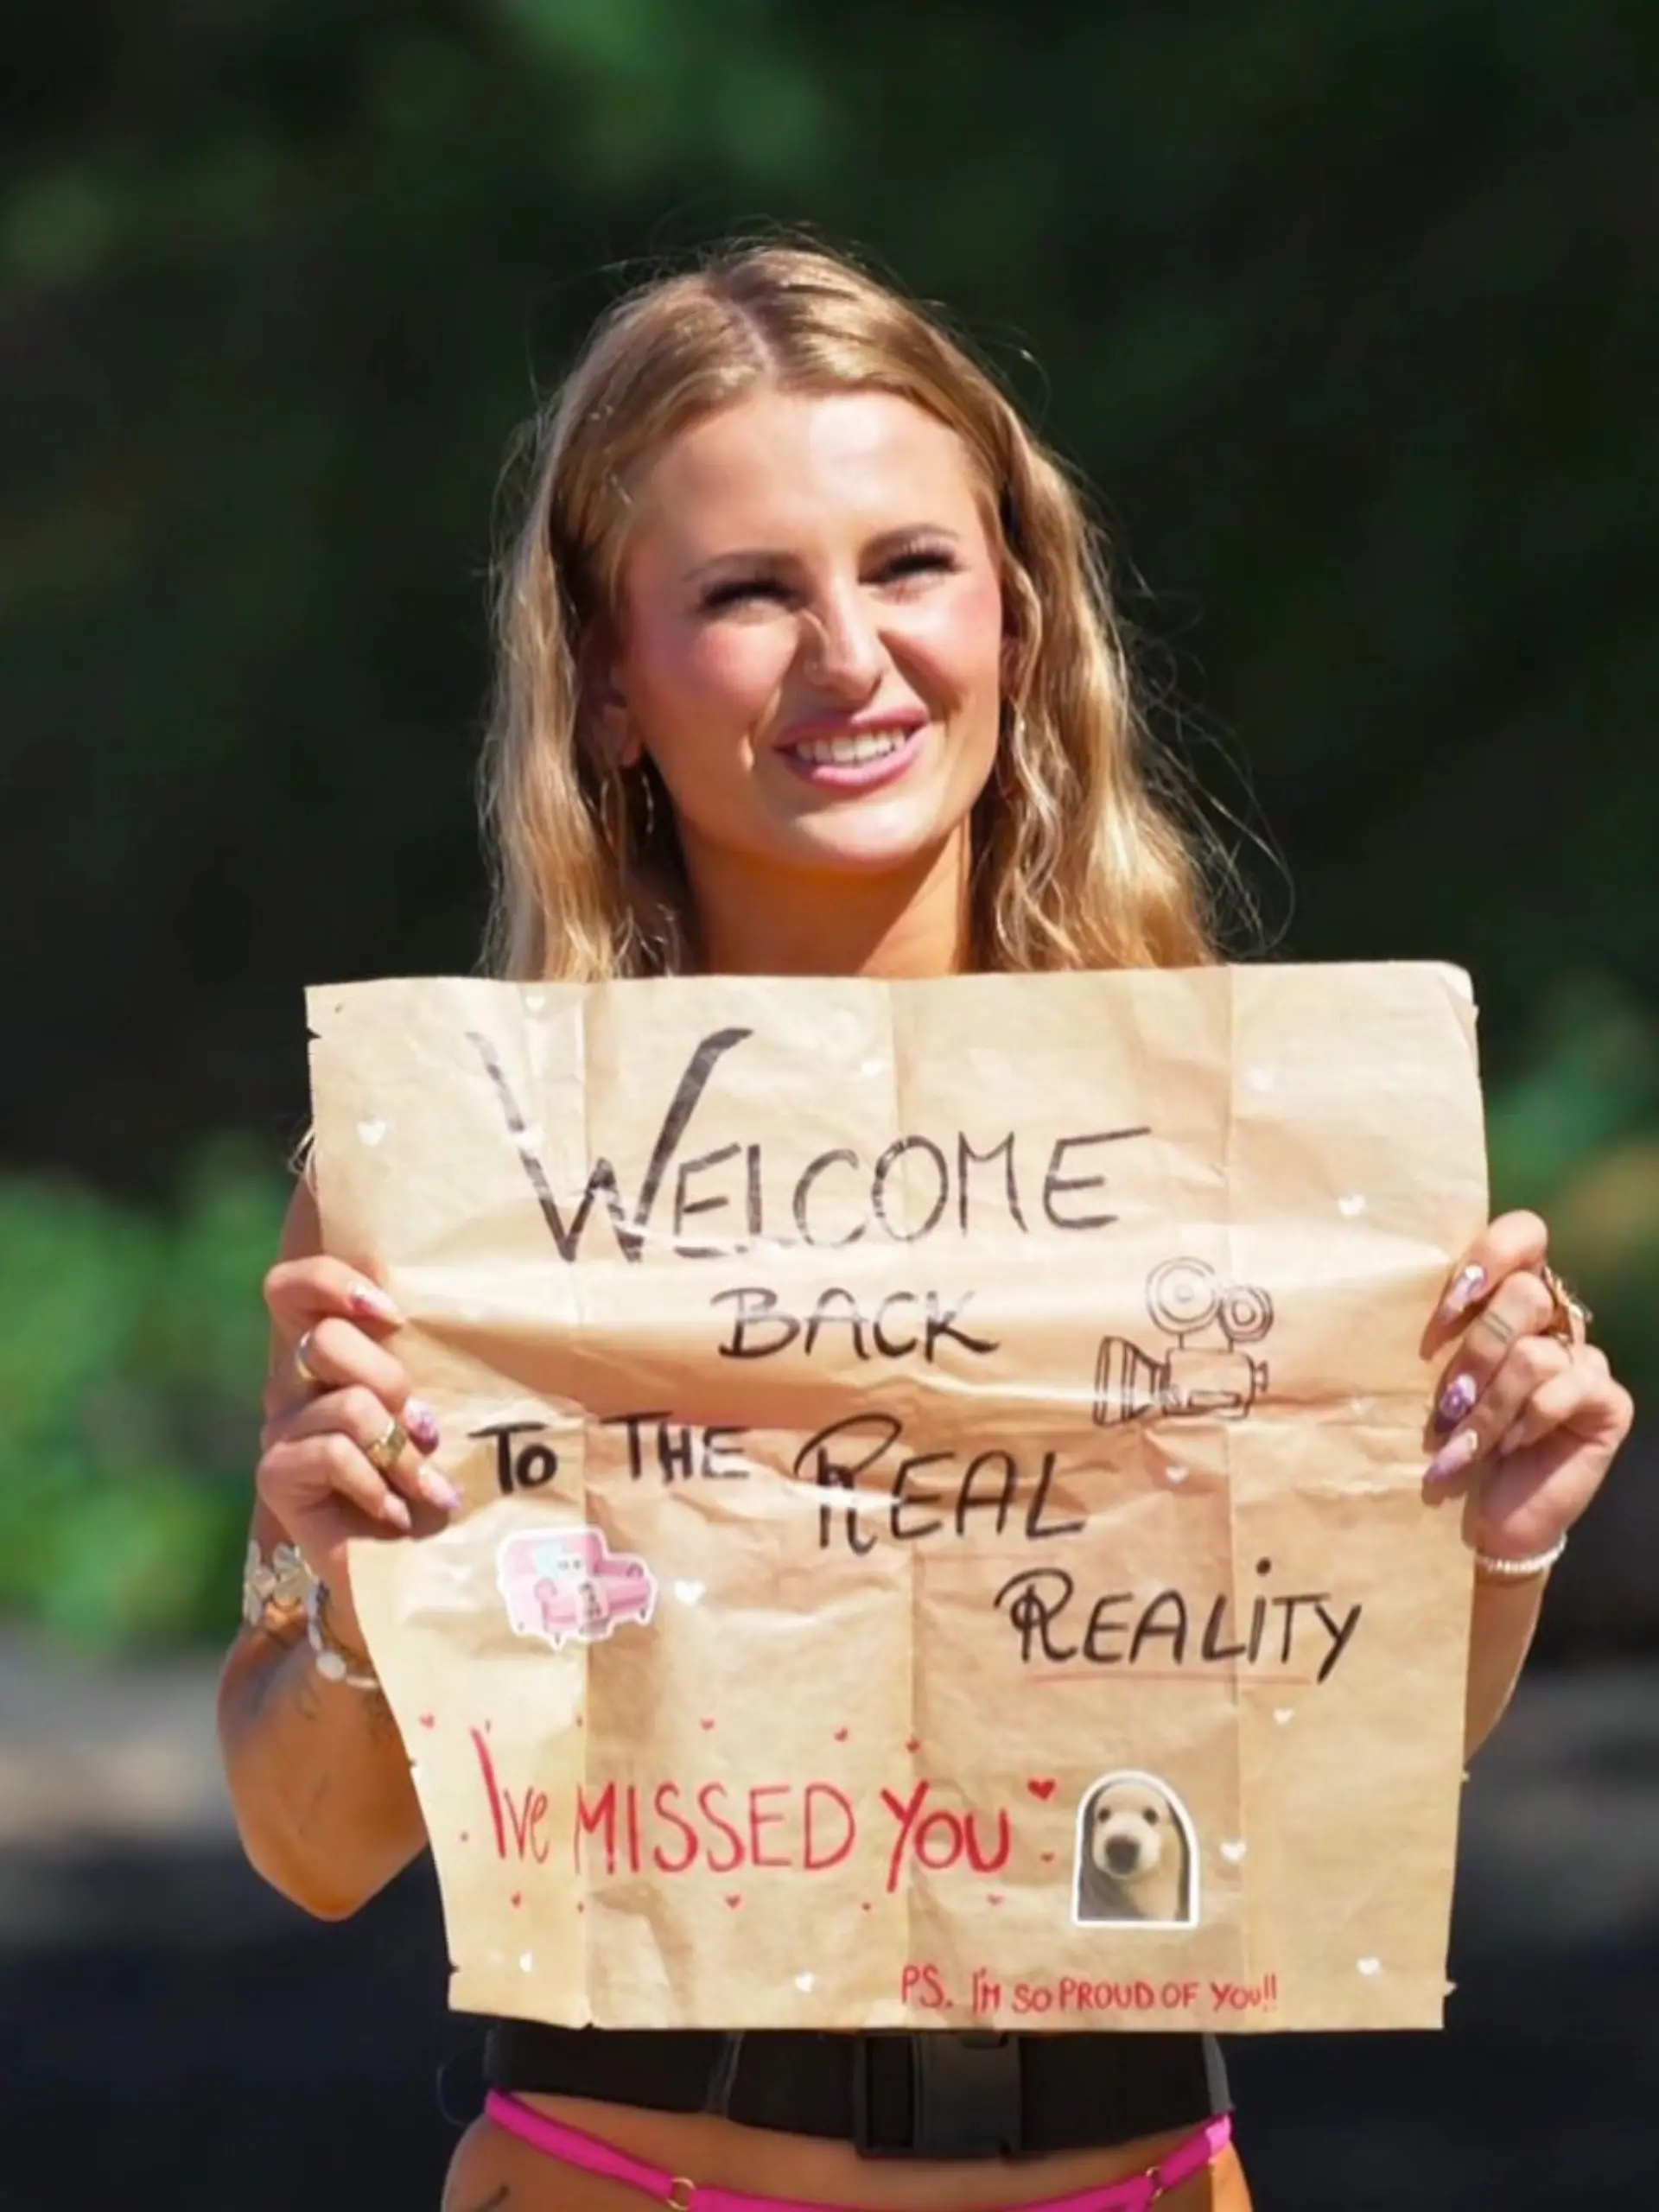 WELCOME
BACK
TO THE REAL
REALITY
I've MISSED YOU
PS. I'M SO PROUD OF YOU!!